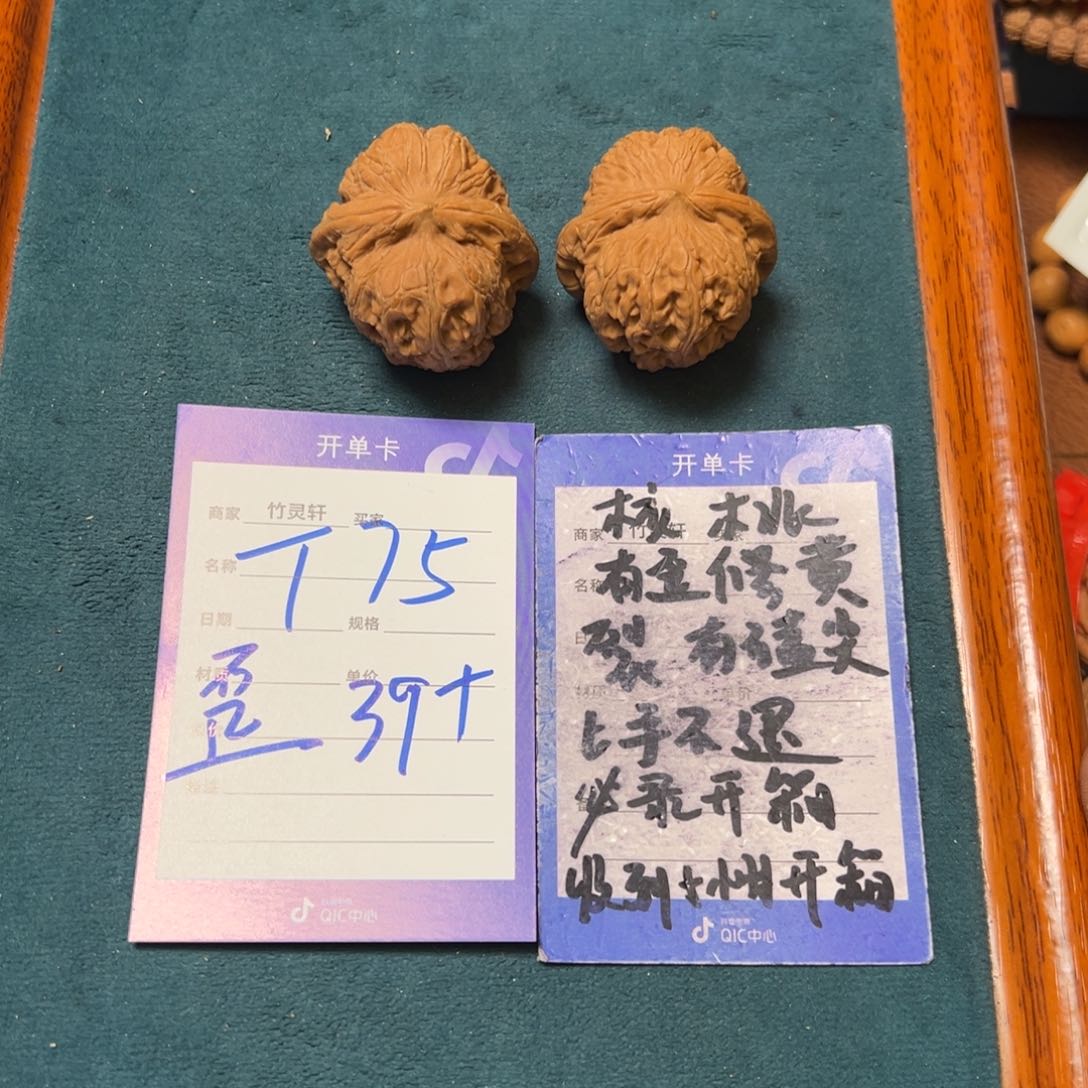 开单卡
商家 竹灵轩 买家
名称
T 75
日期 规格
材质 单价
歪 39+
备注
抖音电商
QIC中心
开单卡
核桃
商家 竹灵轩
有歪修黄
名称
裂 有磕尖
单价
上手不退
必录开箱
收到 小时开箱
抖音电商
QIC中心